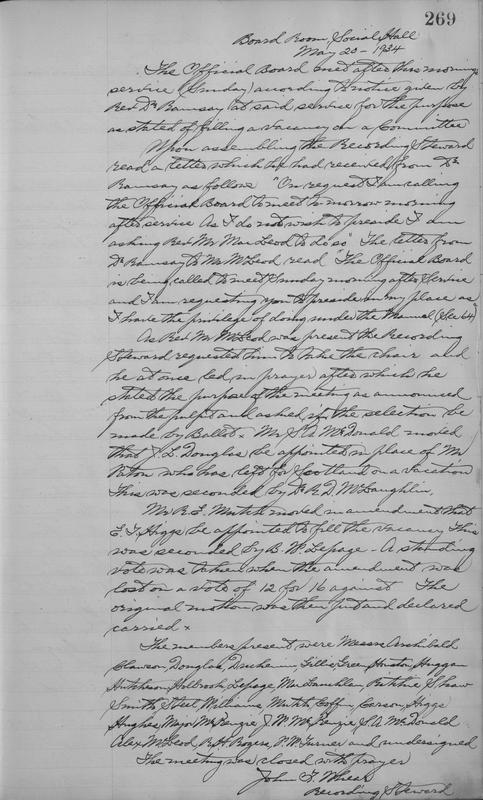 269
Board Room, Social Hall
May 20 - 1934
The Official Board met after this morning
service (Sunday) according to notice given by
Rev Dr Ramsay at said service for the purpose
as stated of filling a vacancy on a Committee
Upon assembling the Recording Steward
read a letter which he had received from Dr
Ramsay as follows "On request I am calling
the Official Board to meet tomorrow morning
after service As I do not wish to preside I am
asking Rev Mr MacLeod to do so" The letter from
Dr Ramsay to Mr McLeod read The Official Board
is being called to meet Sunday morning after service
and I am requesting you to preside in my place as
I have the privilege of doing under the Manual (Sec 64)
As Rev Mr McLeod was present the Recording
Steward requested him to take the chair and
he at once led in prayer after which he
stated the purpose of the meeting as announced
from the pulpit and asked if the selection be
made by Ballot x Mr S. A. McDonald moved
that J. L. Douglas be appointed in place of Mr
who has left for Scotland on a vacation
This was seconded by Dr R. D. McLaughlin.
Mr R. L. Mutch moved in amendment that
E. T. Higgs be appointed to fill the vacancy This
was seconded by B. W. Lepage - A standing
vote was taken when the amendment was
lost on a vote of 12 for 16 against The
original motion was then put and declared
carried x
The members present were Messrs Archibald
Clawson, Douglas, Duchemin, Lillie, Green, Huggan
Hutcheson, Holbrook, Lepage, MacLauchlan, Ritchie, Shaw
Smith, Steel, Williams, Mutch, Coffin, Carson, Higgs
Hughes, Major McKenzie, J. W. McKenzie, S. A. McDonald
Alex McLeod, R. H. Rogers, P. W. Turner and undersigned
The meeting was closed with prayer
John T. Whear
Recording Steward